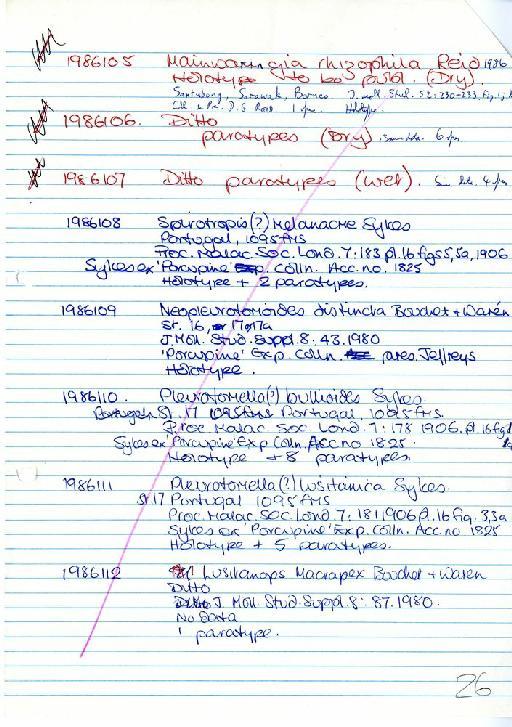 1986105 Mainwaringia rhizophila Reid 1986
Holotype to be publ. (Dry)
Santubong, Sarawak, Borneo J. moll. Stud. 52: 230-233, fig. 1,
1 spm Holotype.
1986106. Ditto
paratypes (Dry). same data. 6 spm
1986107 Ditto paratypes (wet). 4 spm
1986108 Spirotropis(?) Melanacme Sykes
Portugal, 1095 fms
Proc. Malac. Soc. Lond. 7: 183 pl. 16 figs 5, 5a, 1906
Sykes ex 'Porcupine Exp. Colln. Acc. no. 1825
Holotype + 2 paratypes.
1986109 Neopleurotomoides distincta Bouchet + Warén
St. 16, or 17 or 17a
J. Moll. Stud. Suppl. 8: 43. 1980
'Porcupine' Exp. Colln. pres. Jeffreys
Holotype.
1986110. Pleurotomella(?) bullioides Sykes
St. 17 Portugal, 1095 fms.
Proc. Malac. Soc. Lond. 7: 178 1906. pl. 16 fig 1
Sykes ex 'Porcupine' Exp. Colln. Acc. no 1825.
Holotype + 8 paratypes.
1986111 Pleurotomella(?) lusitanica Sykes
St 17 Portugal 1095 fms
Proc. Malac. Soc. Lond. 7: 181, 1906 pl. 16 fig. 3, 3a
Sykes ex 'Porcupine' Exp. Colln. Acc. no 1825
Holotype + 5 paratypes.
1986112 Lusitanops Macrapex Bouchet + Waren
Ditto
J. Moll. Stud. Suppl. 8: 87. 1980.
No Data
1 paratype.
26